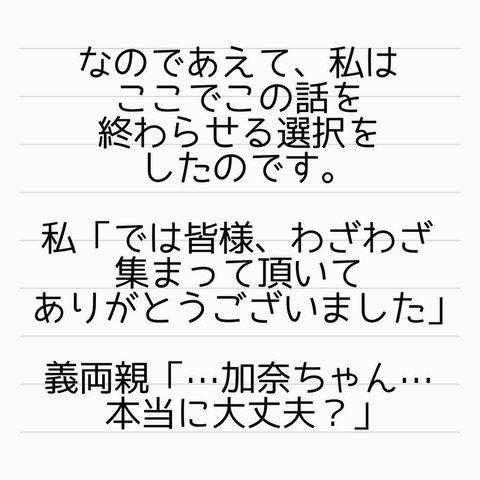 なのであえて、私は
ここでこの話を
終わらせる選択を
したのです。
私「では皆様、わざわざ
集まって頂いて
ありがとうございました」
義両親「…加奈ちゃん…
本当に大丈夫？」